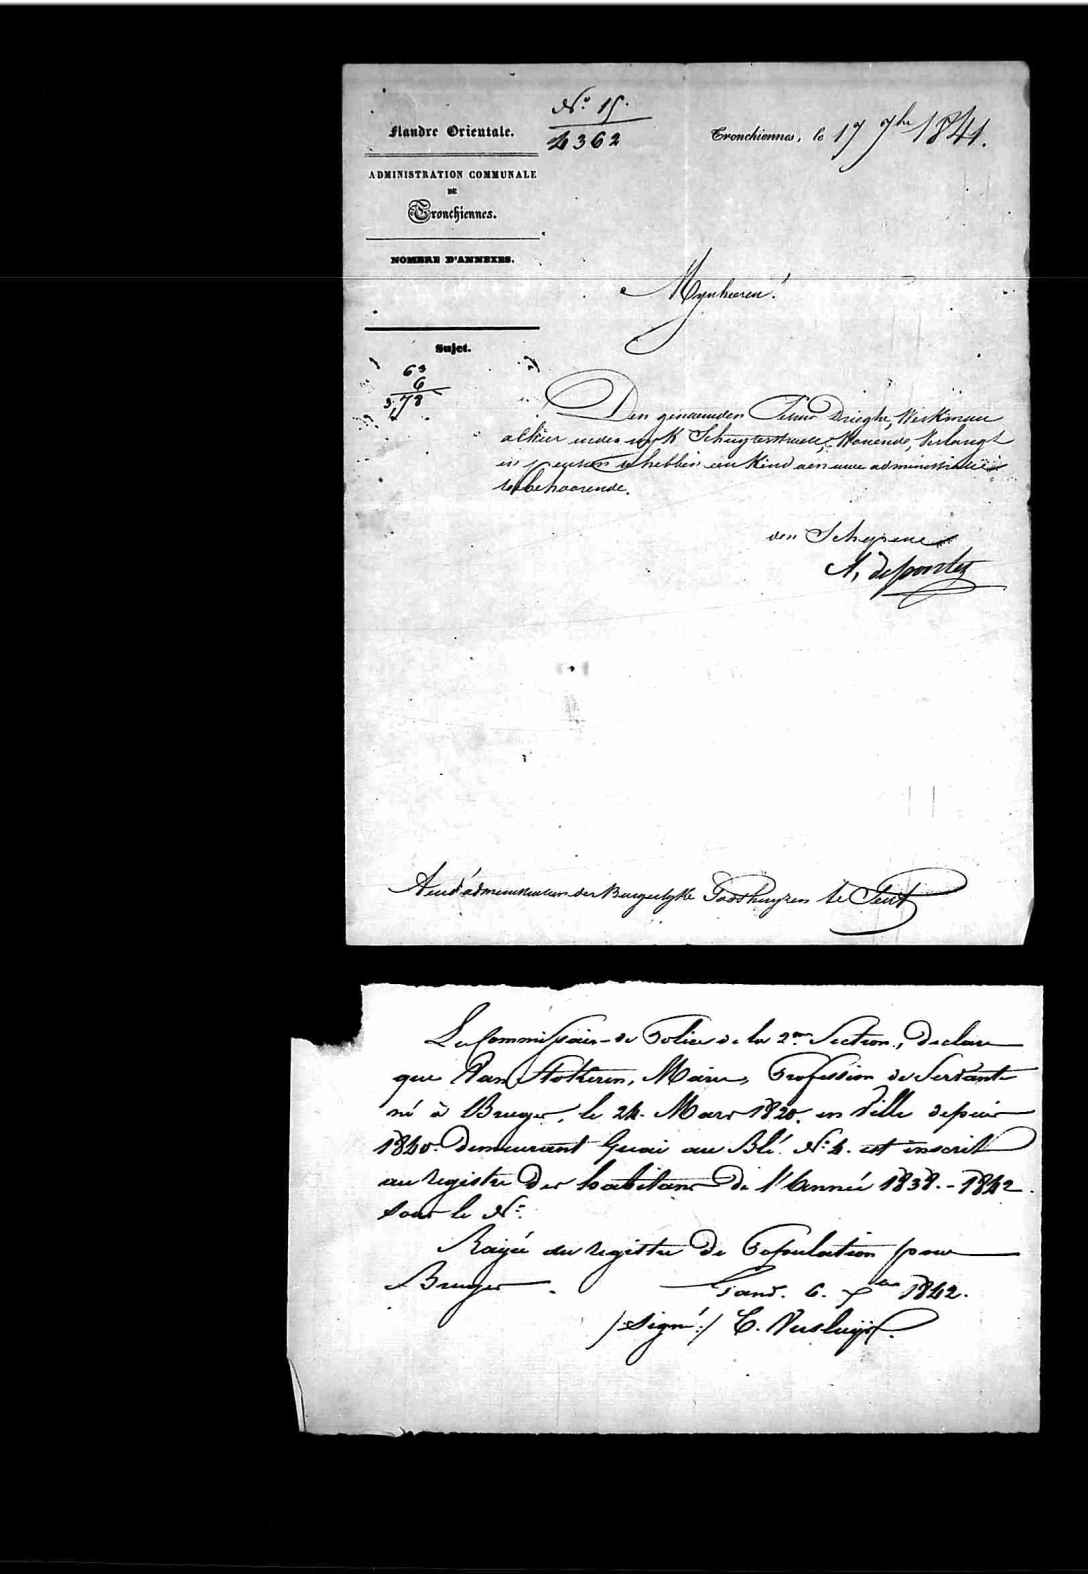 Flandre Orientale.
ADMINISTRATION COMMUNALE
DE
Tronchiennes.
NOMBRE D'ANNEXES.
Sujet.
63
6
378
N.o 15.
4362
Tronchiennes, le 17 7bre 1841.
Mynheeren!
Den genaemden Drieghe, Werkman
alhier in den wyk Wonende, Verlangt
in te hebben een Kind aen uwe administratie
toebehoorende.
den Schepene
A. de
Aen d'administratie der Burgerlyke Godshuyzen te Gent
Le Commissaire de Police de la 2me Section, declare
que Van Stokeren, Marie, Profession de Servante
né à Bruges, le 24. Mars 1820. en Ville depuis
1840. demeurant Quai au Blé. N: 4. est inscrit
au registre des habitans de l'Année 1838.-1842.
sous le No:
Rayée du registre de Population pour
Bruges. Gand. 6. 1842.
/signé:/ C. Versluys.